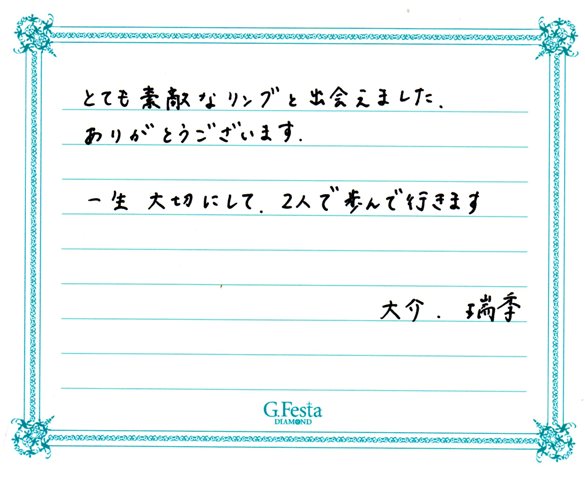 とても素敵なリングと出会えました.
ありがとうございます.
一生 大切にして. 2人で歩んで行きます
大介. 瑞季
G.Festa
DIAMOND